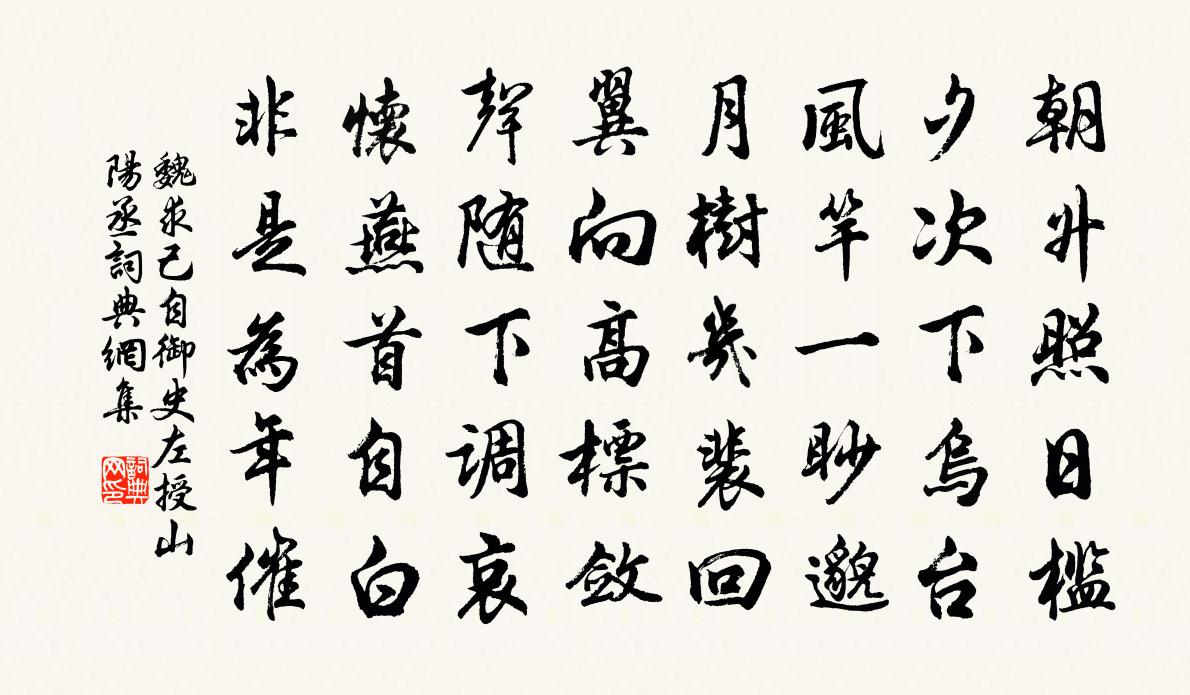 朝升照日檻
夕次下烏台
風竿一眇邈
月樹幾裴回
翼向高標斂
聲随下調哀
懷燕首自白
非是為年催
魏求己自御史左授山
陽丞詞典網集
詞典
网印